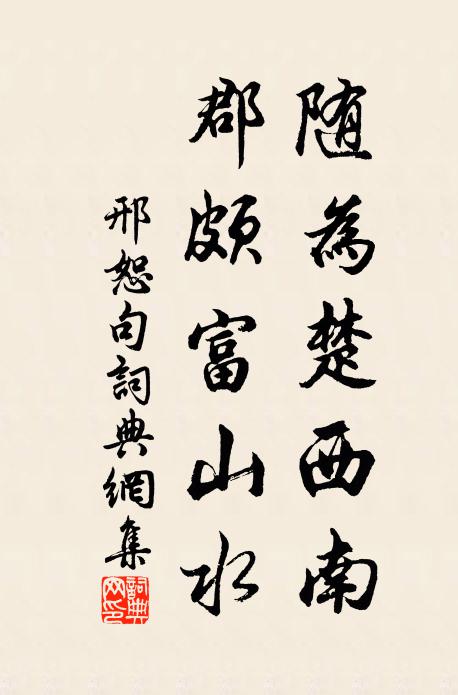 随為楚西南
郡頗富山水
邢恕句詞典網集
詞典
网印